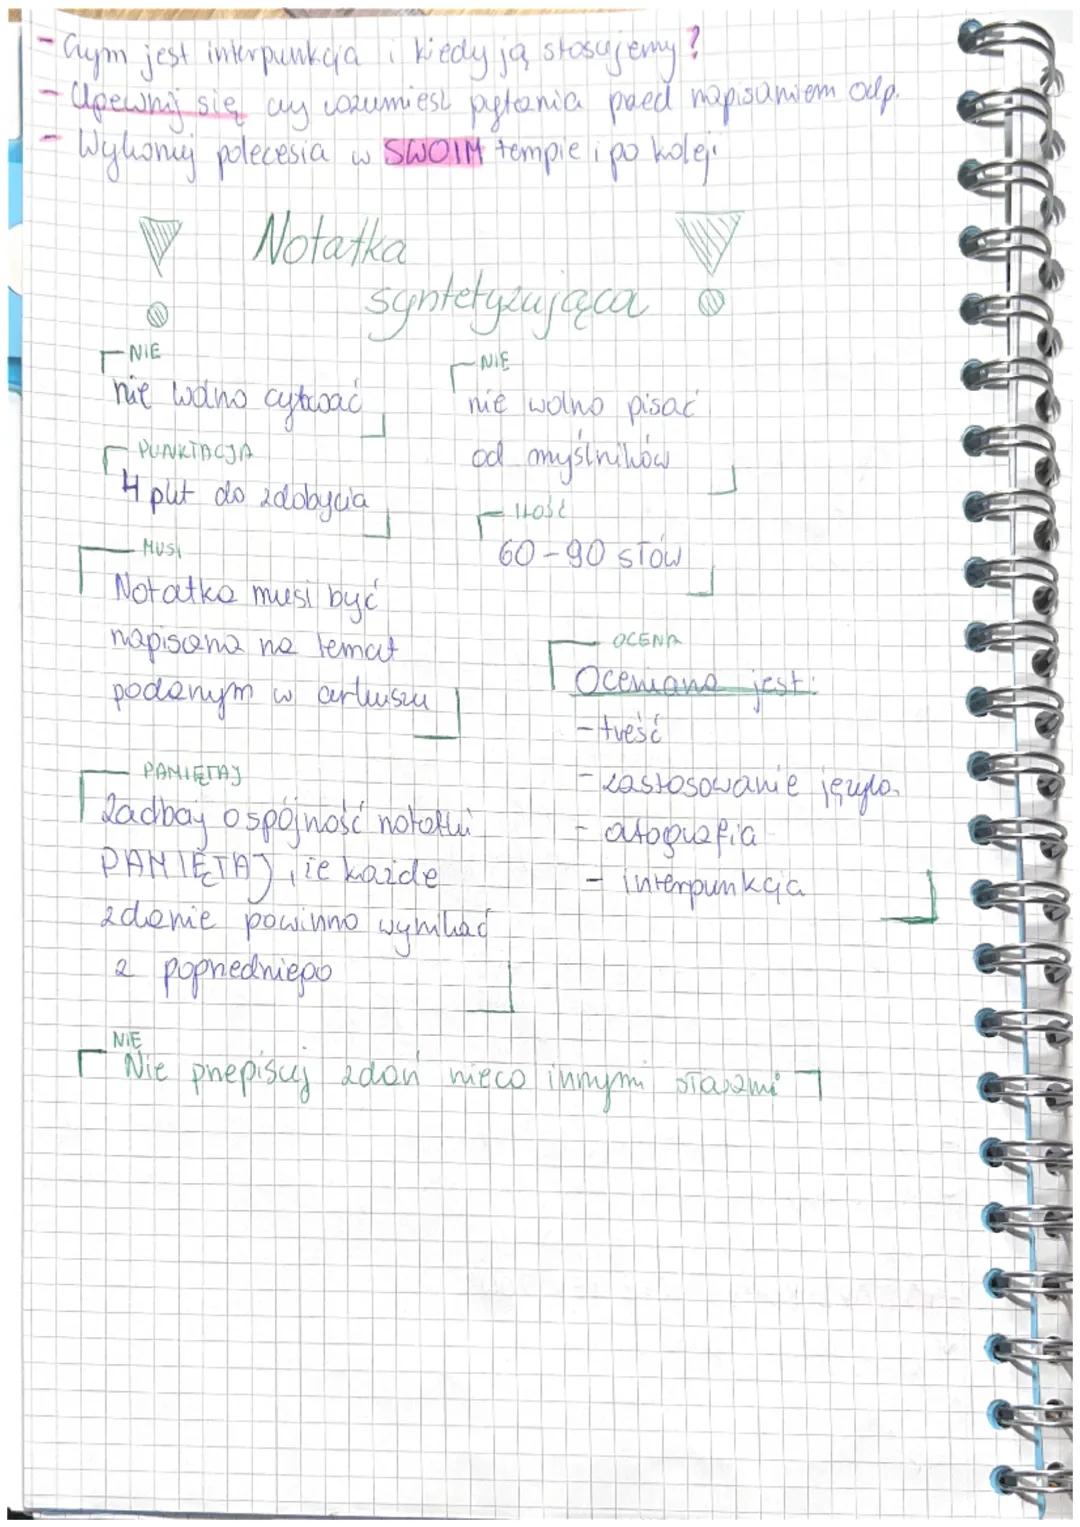 - Czym jest interpunkcja i kiedy ją stosujemy?
- Upewnij się czy rozumiesz pytania przed napisaniem odp.
- Wykonuj polecesia w SWOIM tempie i po kolei
Notatka
syntetyzująca
NIE
nie wolno cytować
PUNKTACJA
4 pkt do zdobycia
MUSI
Notatka musi być
napisana na temat
podanym w arkuszu
PAMIĘTAJ
Zadbaj o spójność notatki
PAMIĘTAJ, że każde
zdanie powinno wynikać
z poprzedniego
NIE
nie wolno pisać
od myślników
ILOŚĆ
60-90 słów
OCENA
Oceniana jest:
- treść
- zastosowanie języka
- ortografia
- interpunkcja
NIE
Nie przepisuj zdań nieco innymi słowami